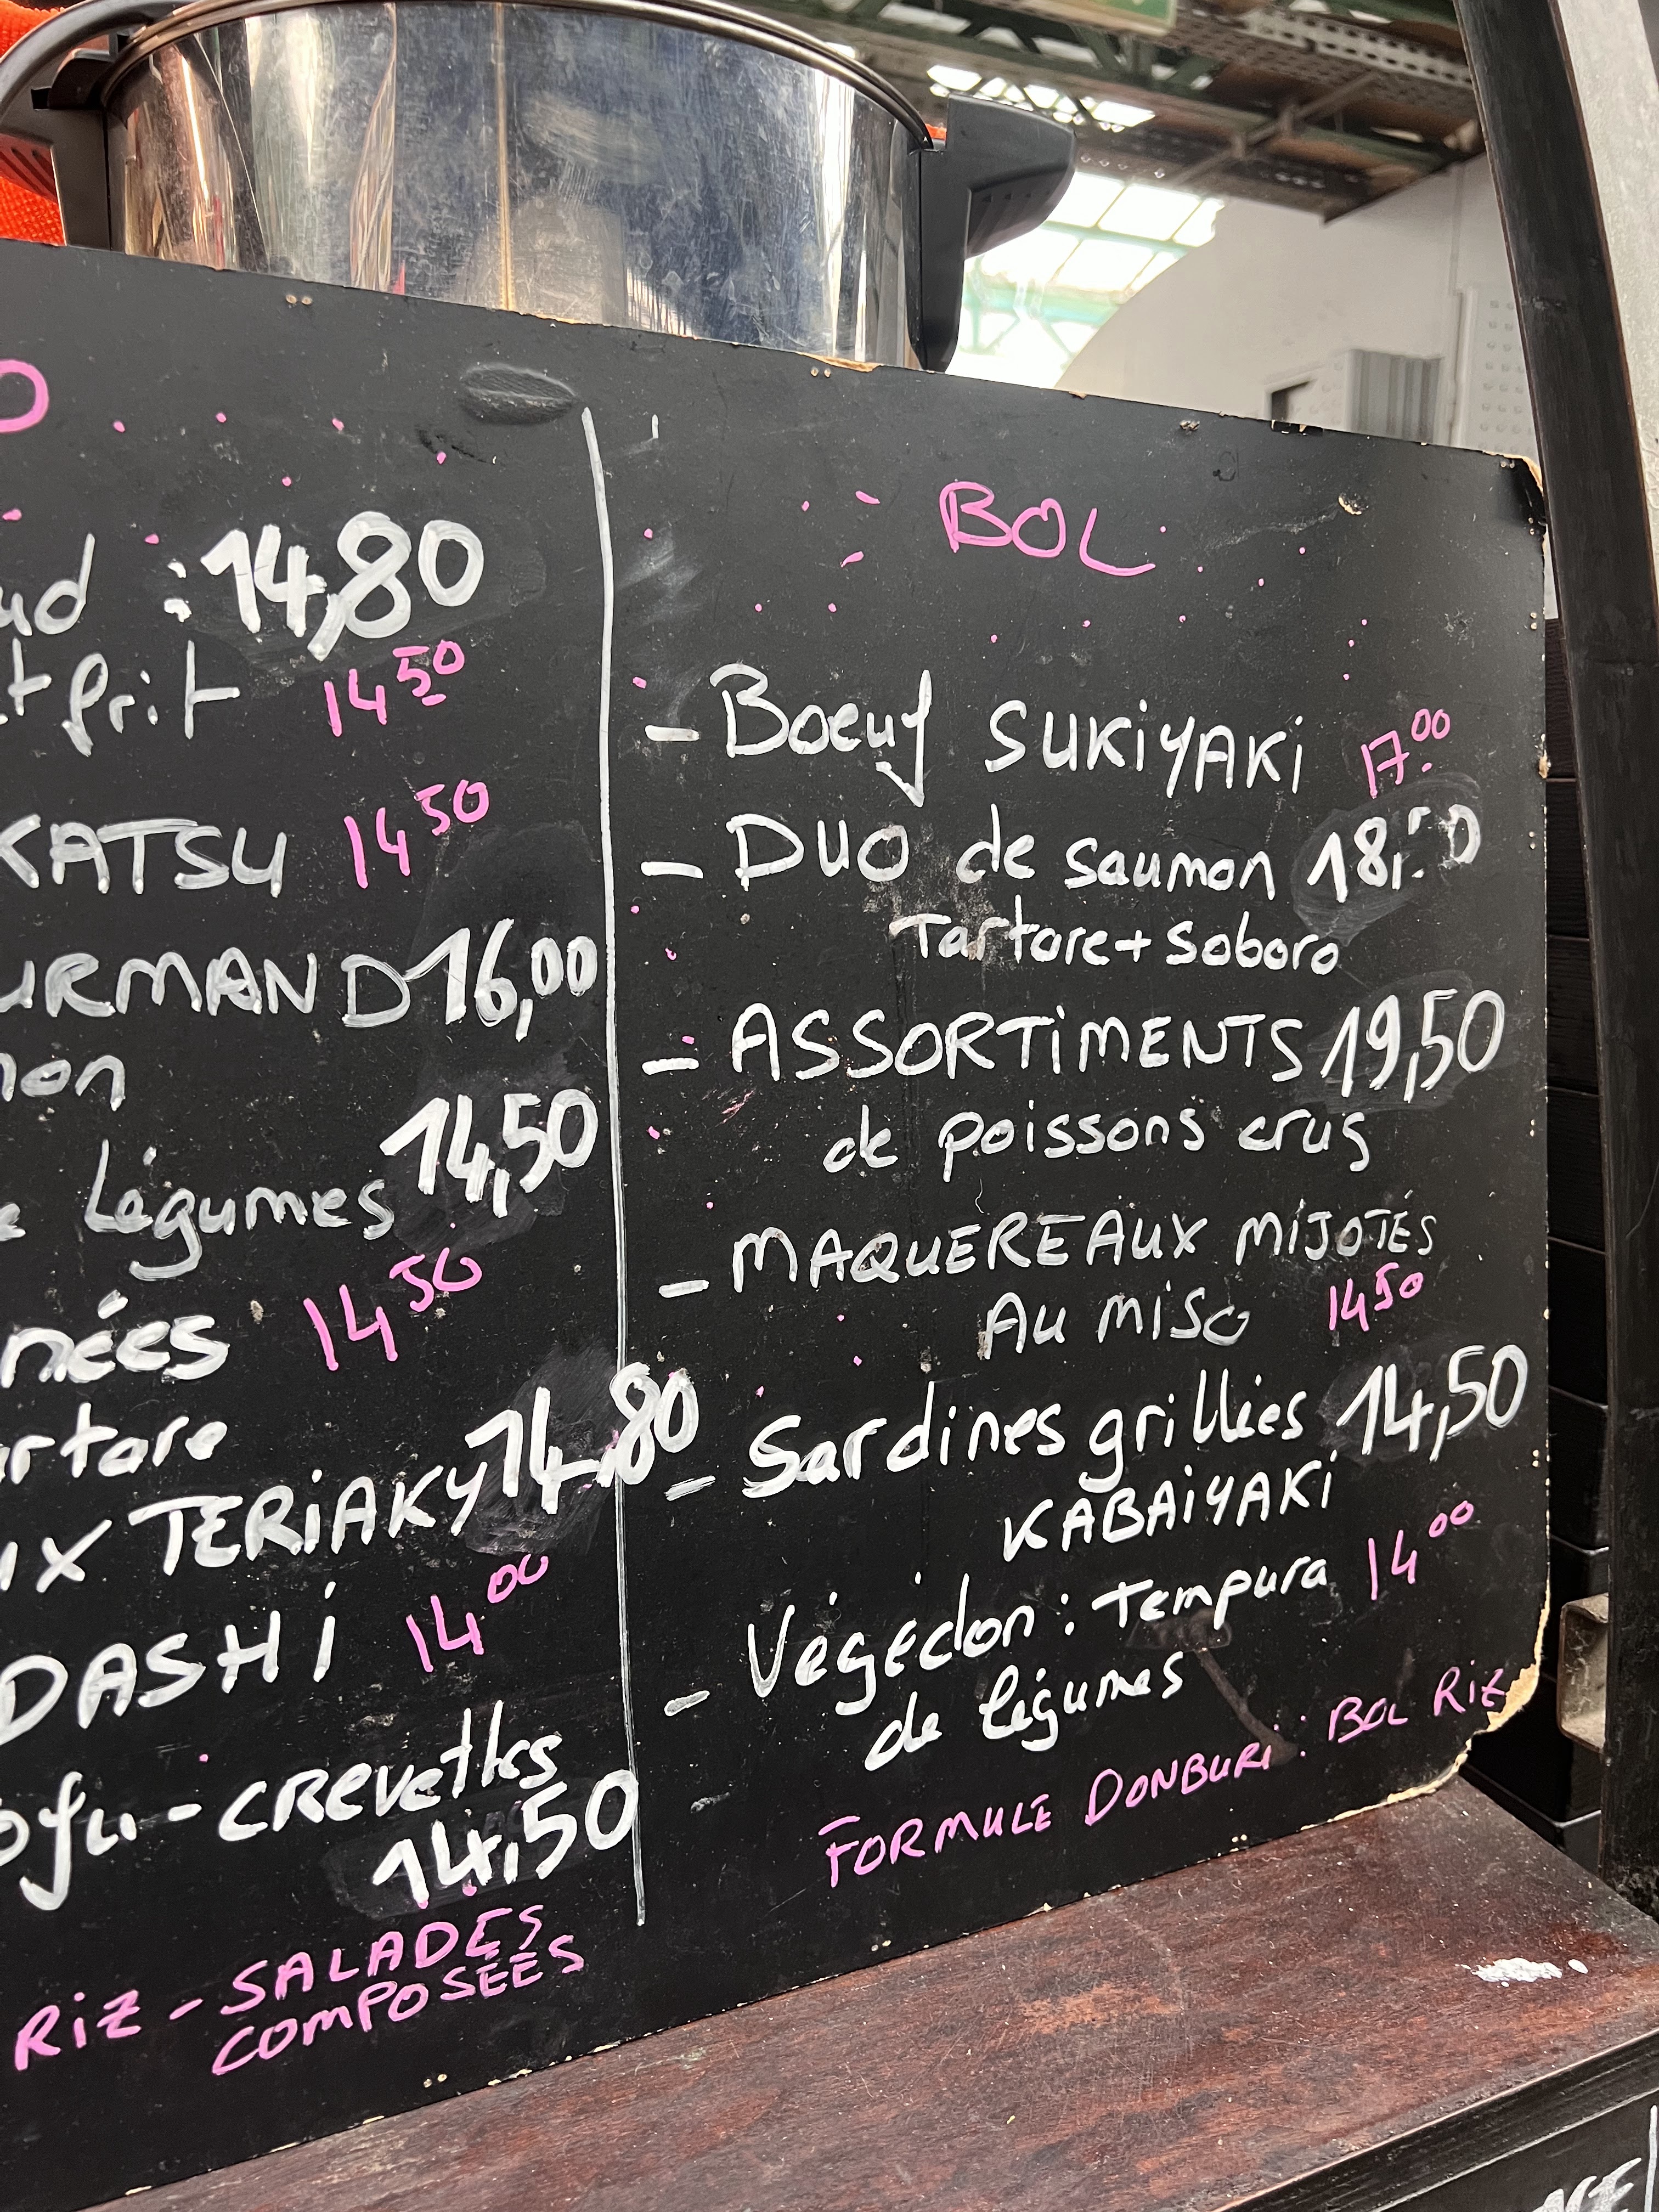 : 14,80
frit 14 50
KATSU 14 50
URMAND 16,00
légumes 14,50
nées 14 50
TERIAKY 14,80
DASHI 14 00
crevettes
14,50
RIZ - SALADES
COMPOSÉES
BOL
- Boeuf SUKIYAKI 17.00
- DUO de saumon
Tartare + Soboro
- ASSORTIMENTS 19,50
de poissons crus
- MAQUEREAUX MIJOTÉS
AU MISO 14 50
- Sardines grillées 14,50
KABAIYAKI
- Végédon : Tempura 14 00
de légumes
FORMULE DONBURI : BOL RIZ